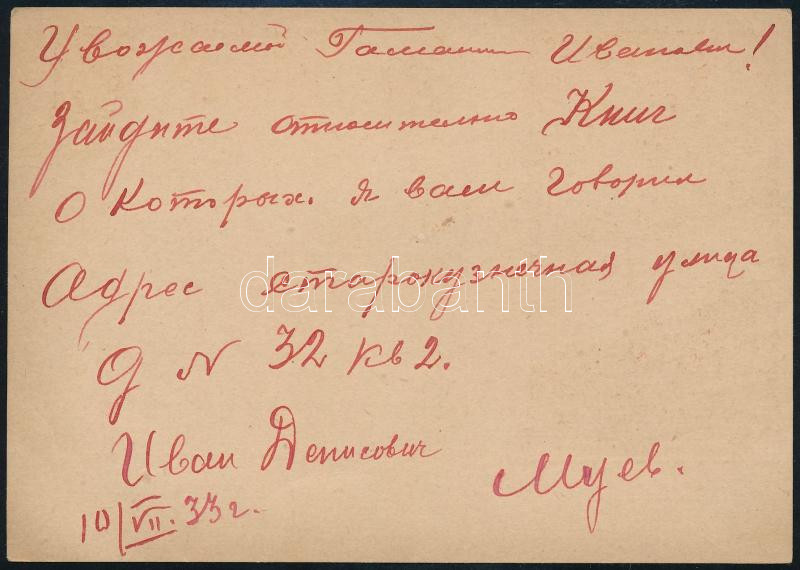 Уважаемый Иванович!
Зайдите относительно Книг
о которых я вам говорил
Адрес старокузнечная улица
д N 32 кв 2.
Иван Денисович
Муев.
10/VII. 33 г.
darabanth